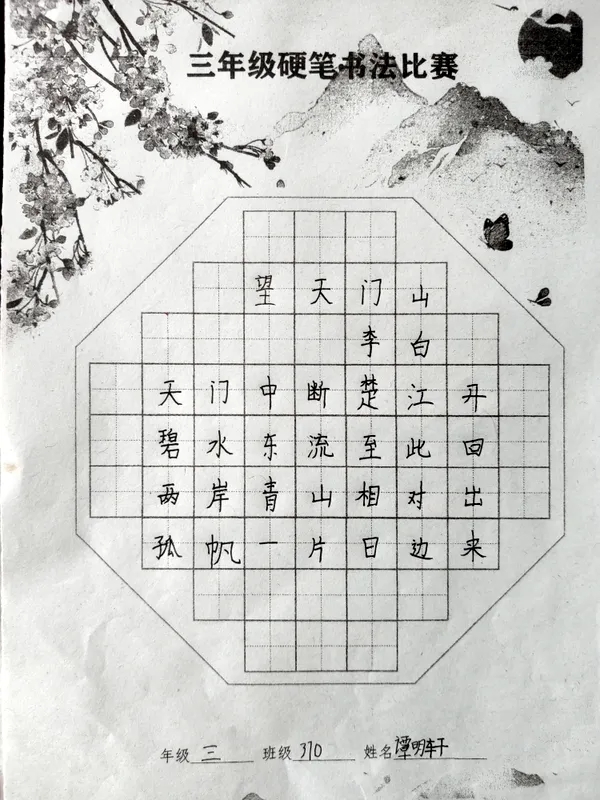 三年级硬笔书法比赛
望天门山
李白
天门中断楚江开
碧水东流至此回
两岸青山相对出
孤帆一片日边来
年级 三 班级 310 姓名 谭明轩